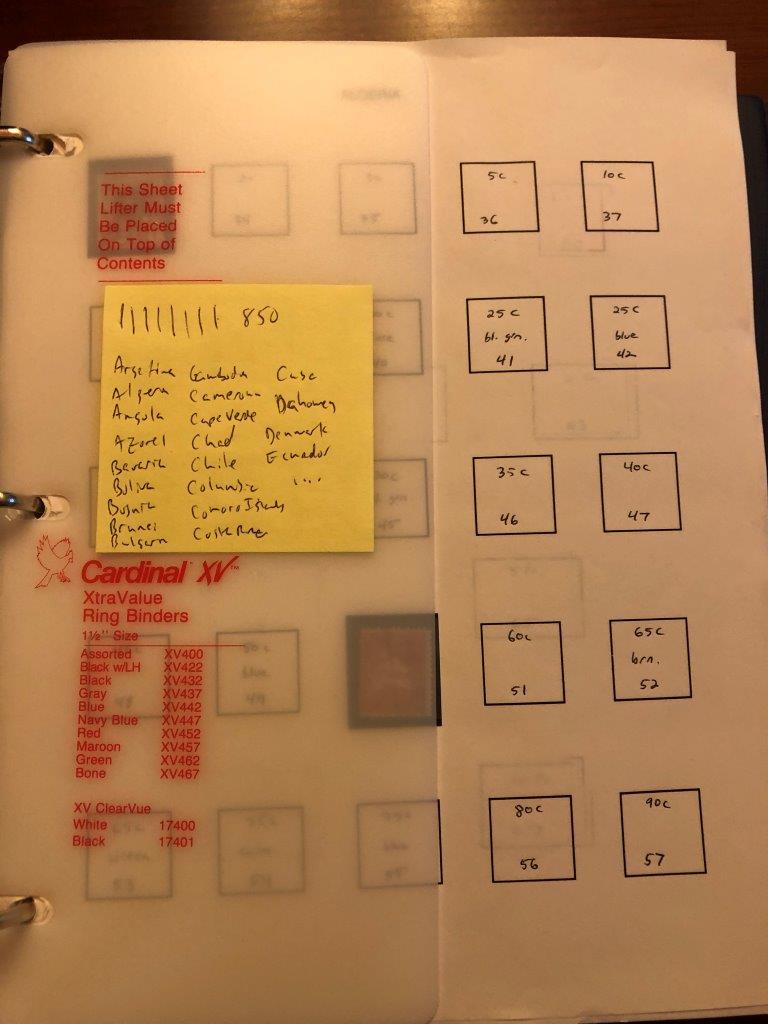 This Sheet
Lifter Must
Be Placed
On Top of
Contents
5c
36
10c
37
||||||||| 850
Argetina Cambodia Cuba
Algera Cameroun Dahomey
Angola Cape Verde Denmark
Azores Chad Ecuador
Bavaria Chile ....
Boliva Columbia
Bosnia Comoro Islands
Brunei Costa Rica
Bulgaria
25c
bl. grn.
41
25c
blue
42
35c
46
40c
47
Cardinal XV™
XtraValue
Ring Binders
1½" Size
Assorted XV400
Black w/LH XV422
Black XV432
Gray XV437
Blue XV442
Navy Blue XV447
Red XV452
Maroon XV457
Green XV462
Bone XV467
60c
51
65c
brn.
52
XV ClearVue
White 17400
Black 17401
80c
56
90c
57